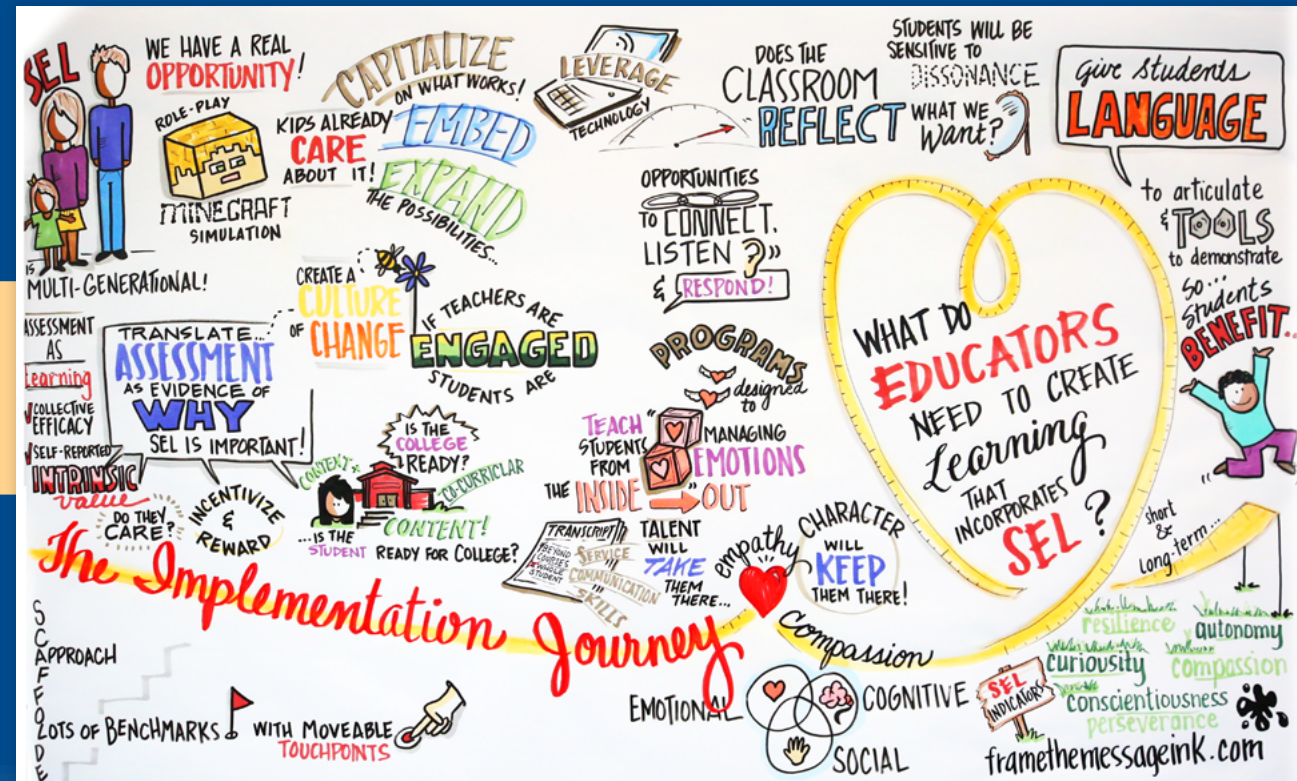 SEL
IS
MULTI-GENERATIONAL!
WE HAVE A REAL
OPPORTUNITY!
ROLE-PLAY
MINECRAFT
SIMULATION
KIDS ALREADY
CARE
ABOUT IT!
CAPITALIZE
ON WHAT WORKS!
EMBED
EXPAND
THE POSSIBILITIES...
LEVERAGE
TECHNOLOGY
DOES THE
CLASSROOM
REFLECT
WHAT WE
Want?
STUDENTS WILL BE
SENSITIVE TO
DISSONANCE
Give Students
LANGUAGE
to articulate
& TOOLS
to demonstrate
SO...
Students
BENEFIT...
short
&
long-term...
OPPORTUNITIES
TO CONNECT,
LISTEN
& RESPOND!
CREATE A
CULTURE
OF CHANGE
IF TEACHERS ARE
ENGAGED
STUDENTS ARE
ASSESSMENT
AS
Learning
COLLECTIVE
EFFICACY
SELF-REPORTED
INTRINSIC
value
TRANSLATE...
ASSESSMENT
AS EVIDENCE OF
WHY
SEL IS IMPORTANT!
DO THEY
CARE?
INCENTIVIZE
&
REWARD
IS THE
COLLEGE
READY?
CONTENT+
CO-CURRICLAR
CONTENT!
...IS THE
STUDENT READY FOR COLLEGE?
PROGRAMS
designed
to
TEACH
STUDENTS
FROM
THE INSIDE OUT
MANAGING
EMOTIONS
TRANSCRIPT
BEYOND
COURSES
WHOLE
STUDENT
SERVICE
COMMUNICATION
SKILLS
TALENT
WILL
TAKE
THEM
THERE...
empathy
CHARACTER
WILL
KEEP
THEM THERE!
Compassion
WHAT DO
EDUCATORS
NEED TO CREATE
Learning
THAT
INCORPORATES
SEL?
The Implementation Journey
SCAFFOLDED
APPROACH
LOTS OF BENCHMARKS
WITH MOVEABLE
TOUCHPOINTS
EMOTIONAL
COGNITIVE
SOCIAL
SEL
INDICATORS
resilience
autonomy
curiousity
compassion
conscientiousness
perseverance
framethemessageink.com